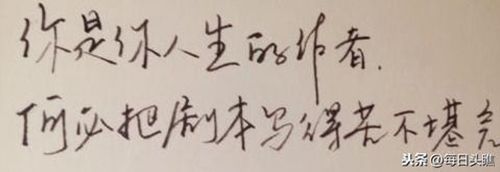 你是你人生的作者.
何必把剧本写得苦不堪言
头条 @每日头醮